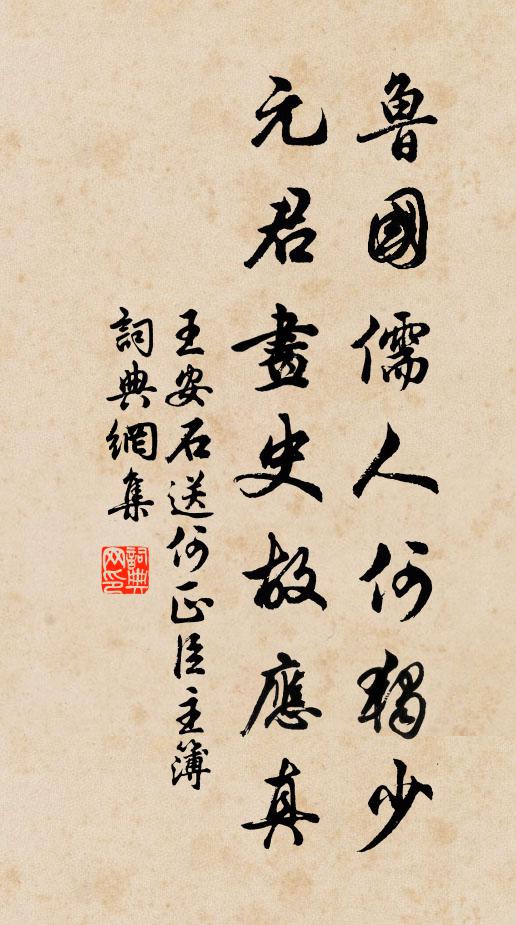 魯國儒人何獨少
元君畫史故應真
王安石送何正臣主簿
詞典網集
詞典网印